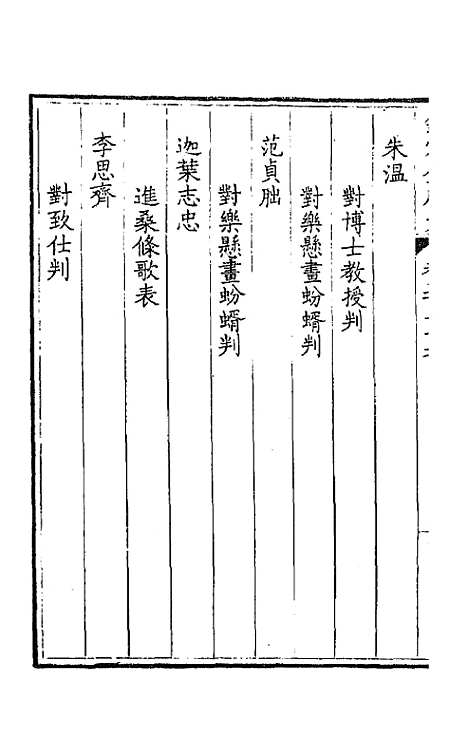 朱溫
對博士教授判
對樂懸畫蚡蝑判
范貞朏
對樂懸畫蚡蝑判
迦葉志忠
進桑條歌表
李思齊
對致仕判